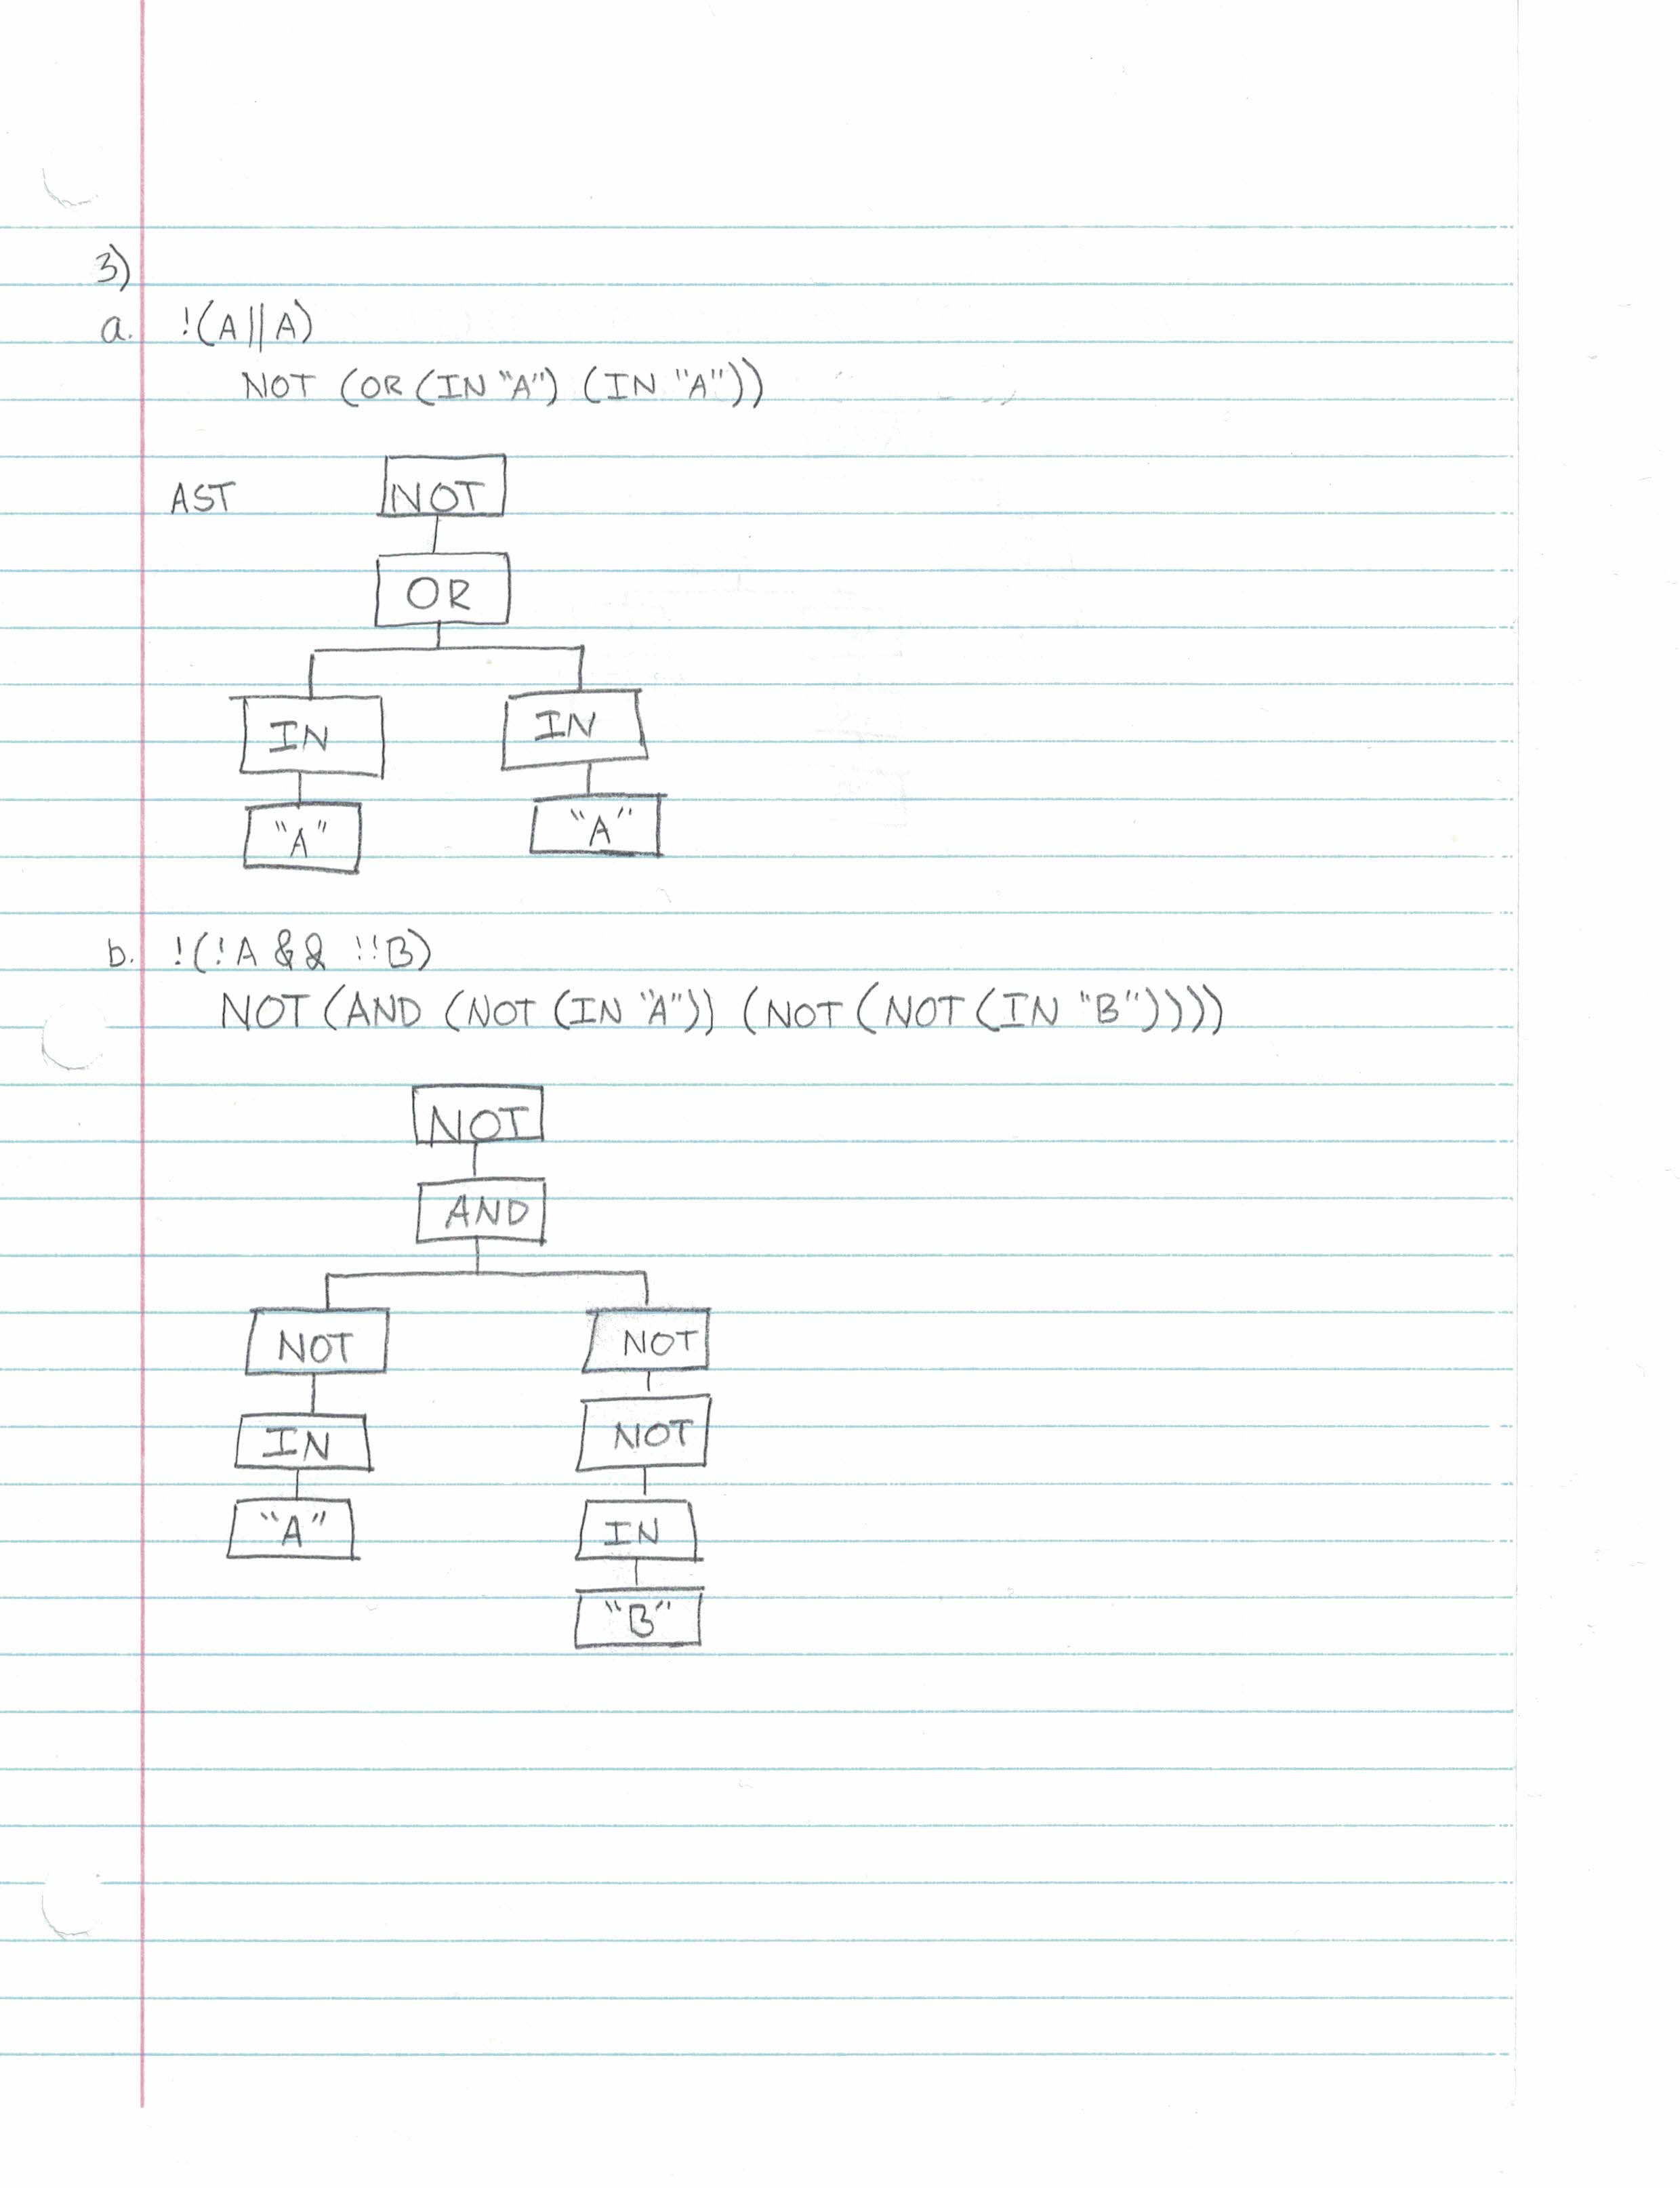 3)
a. !(A||A)
NOT (OR (IN "A") (IN "A"))
AST NOT
OR
IN IN
"A" "A"
b. !(!A && !!B)
NOT (AND (NOT (IN "A")) (NOT (NOT (IN "B"))))
NOT
AND
NOT NOT
NOT
IN
"A"
IN
"B"